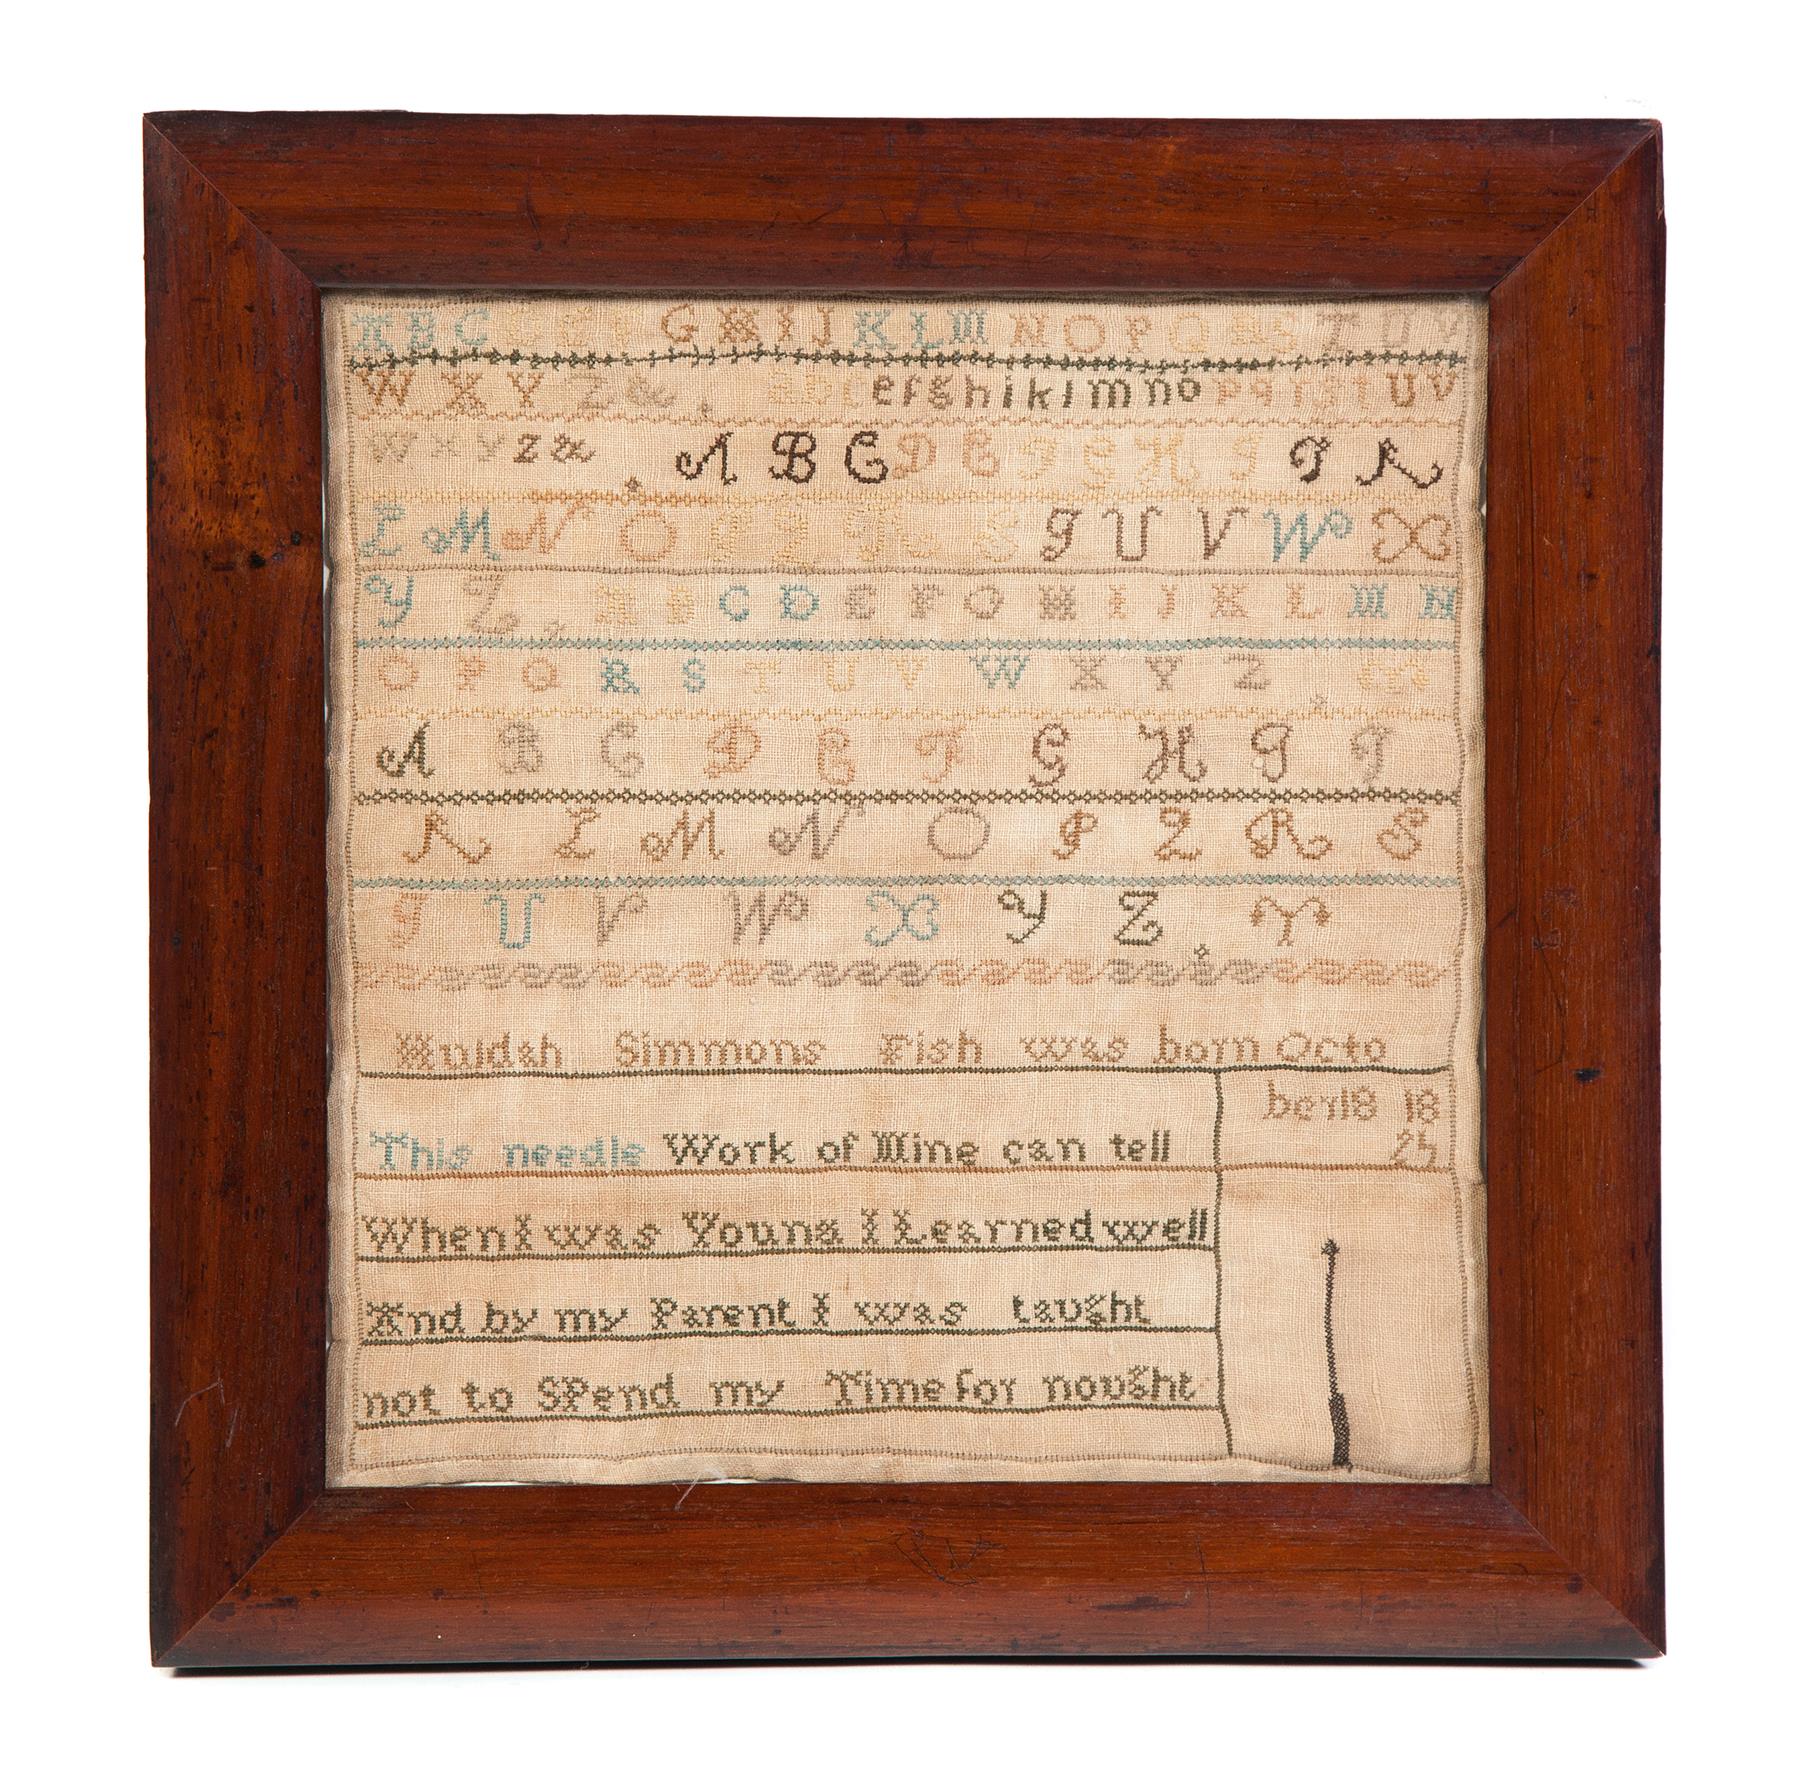 A B C D E F G H I J K L M N O P Q R S T U V
W X Y Z & a b c e f g h i k l m n o p q r s t u v
w x y z & A B C D E F G H I J K
L M N O P Q R S T U V W X
Y Z A B C D E F G H I J K L M N
O P Q R S T U V W X Y Z
A B C D E F G H I J
K L M N O P Q R S
T U V W X Y Z
Huldah Simmons Fish was born Octo
ber 18 18
25
This needle Work of Mine can tell
When I was Young I Learned well
And by my Parent I was taught
not to SPend my Time for nought